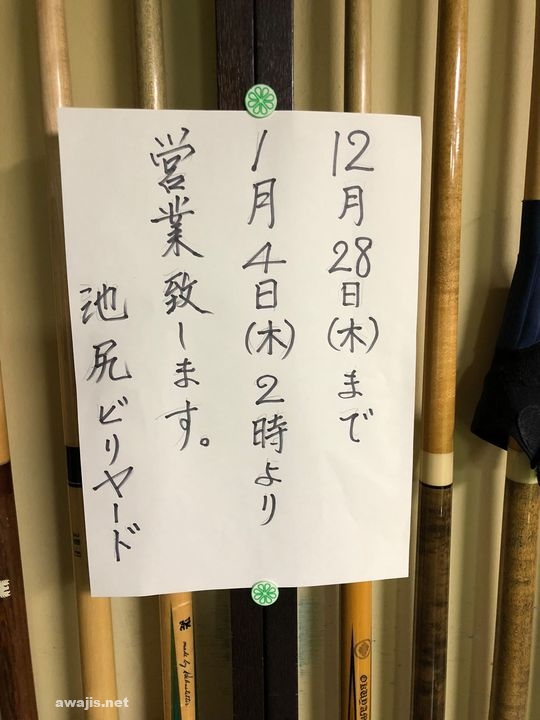 12月28日(木)まで
1月4日(木)2時より
営業致します。
池尻ビリヤード
made by
awajis.net